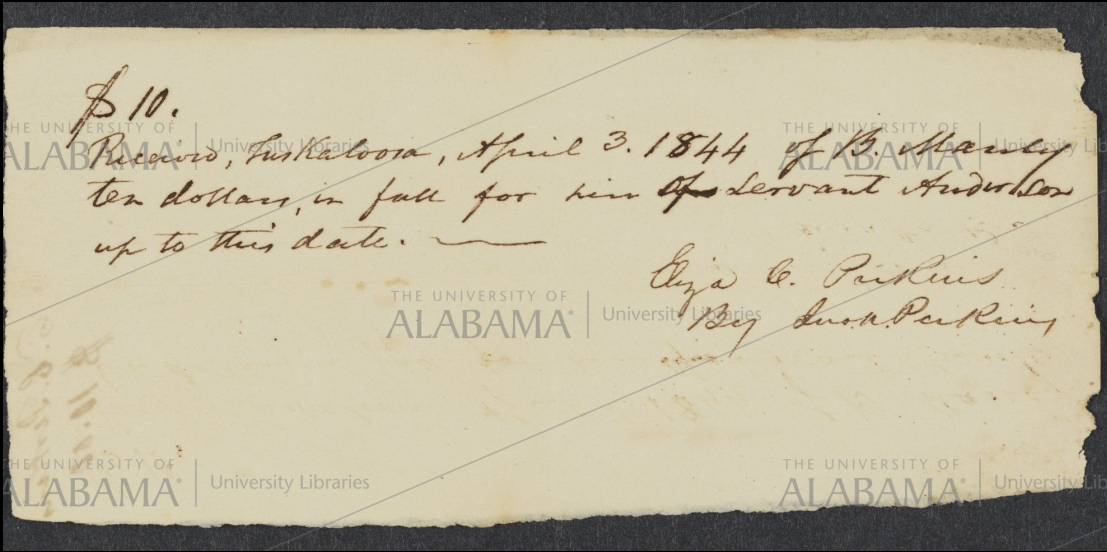 $10.
Receivd, Tuskaloosa, April 3. 1844 of B. Manly
ten dollars, in full for hire of Servant Anderson
up to this date.
Eliza C. Perkins
By Perkins
THE UNIVERSITY OF ALABAMA | University Libraries
THE UNIVERSITY OF ALABAMA | University Libraries
THE UNIVERSITY OF ALABAMA | University Libraries
THE UNIVERSITY OF ALABAMA | University Libraries
THE UNIVERSITY OF ALABAMA | University Libraries